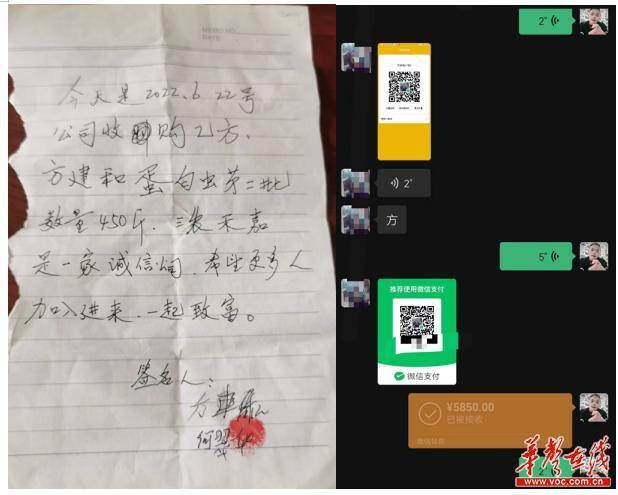 今天是2022.6 22号
公司收购乙方.
方建和蛋白虫第二批
数量450斤.三农禾嘉
是一家诚信公司.希望更多人
加入进来.一起致富。
签名人:
方
何翠
2"
2"
方
5"
推荐使用微信支付
微信支付
¥5850.00
已被接收
微信转账
2"
华声在线
www.voc.com.cn